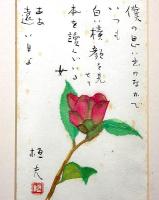 僕の思い出のなかで
いつも
白い横顔を見せて
本を讀んでいる
女
ああ
遠い日よ